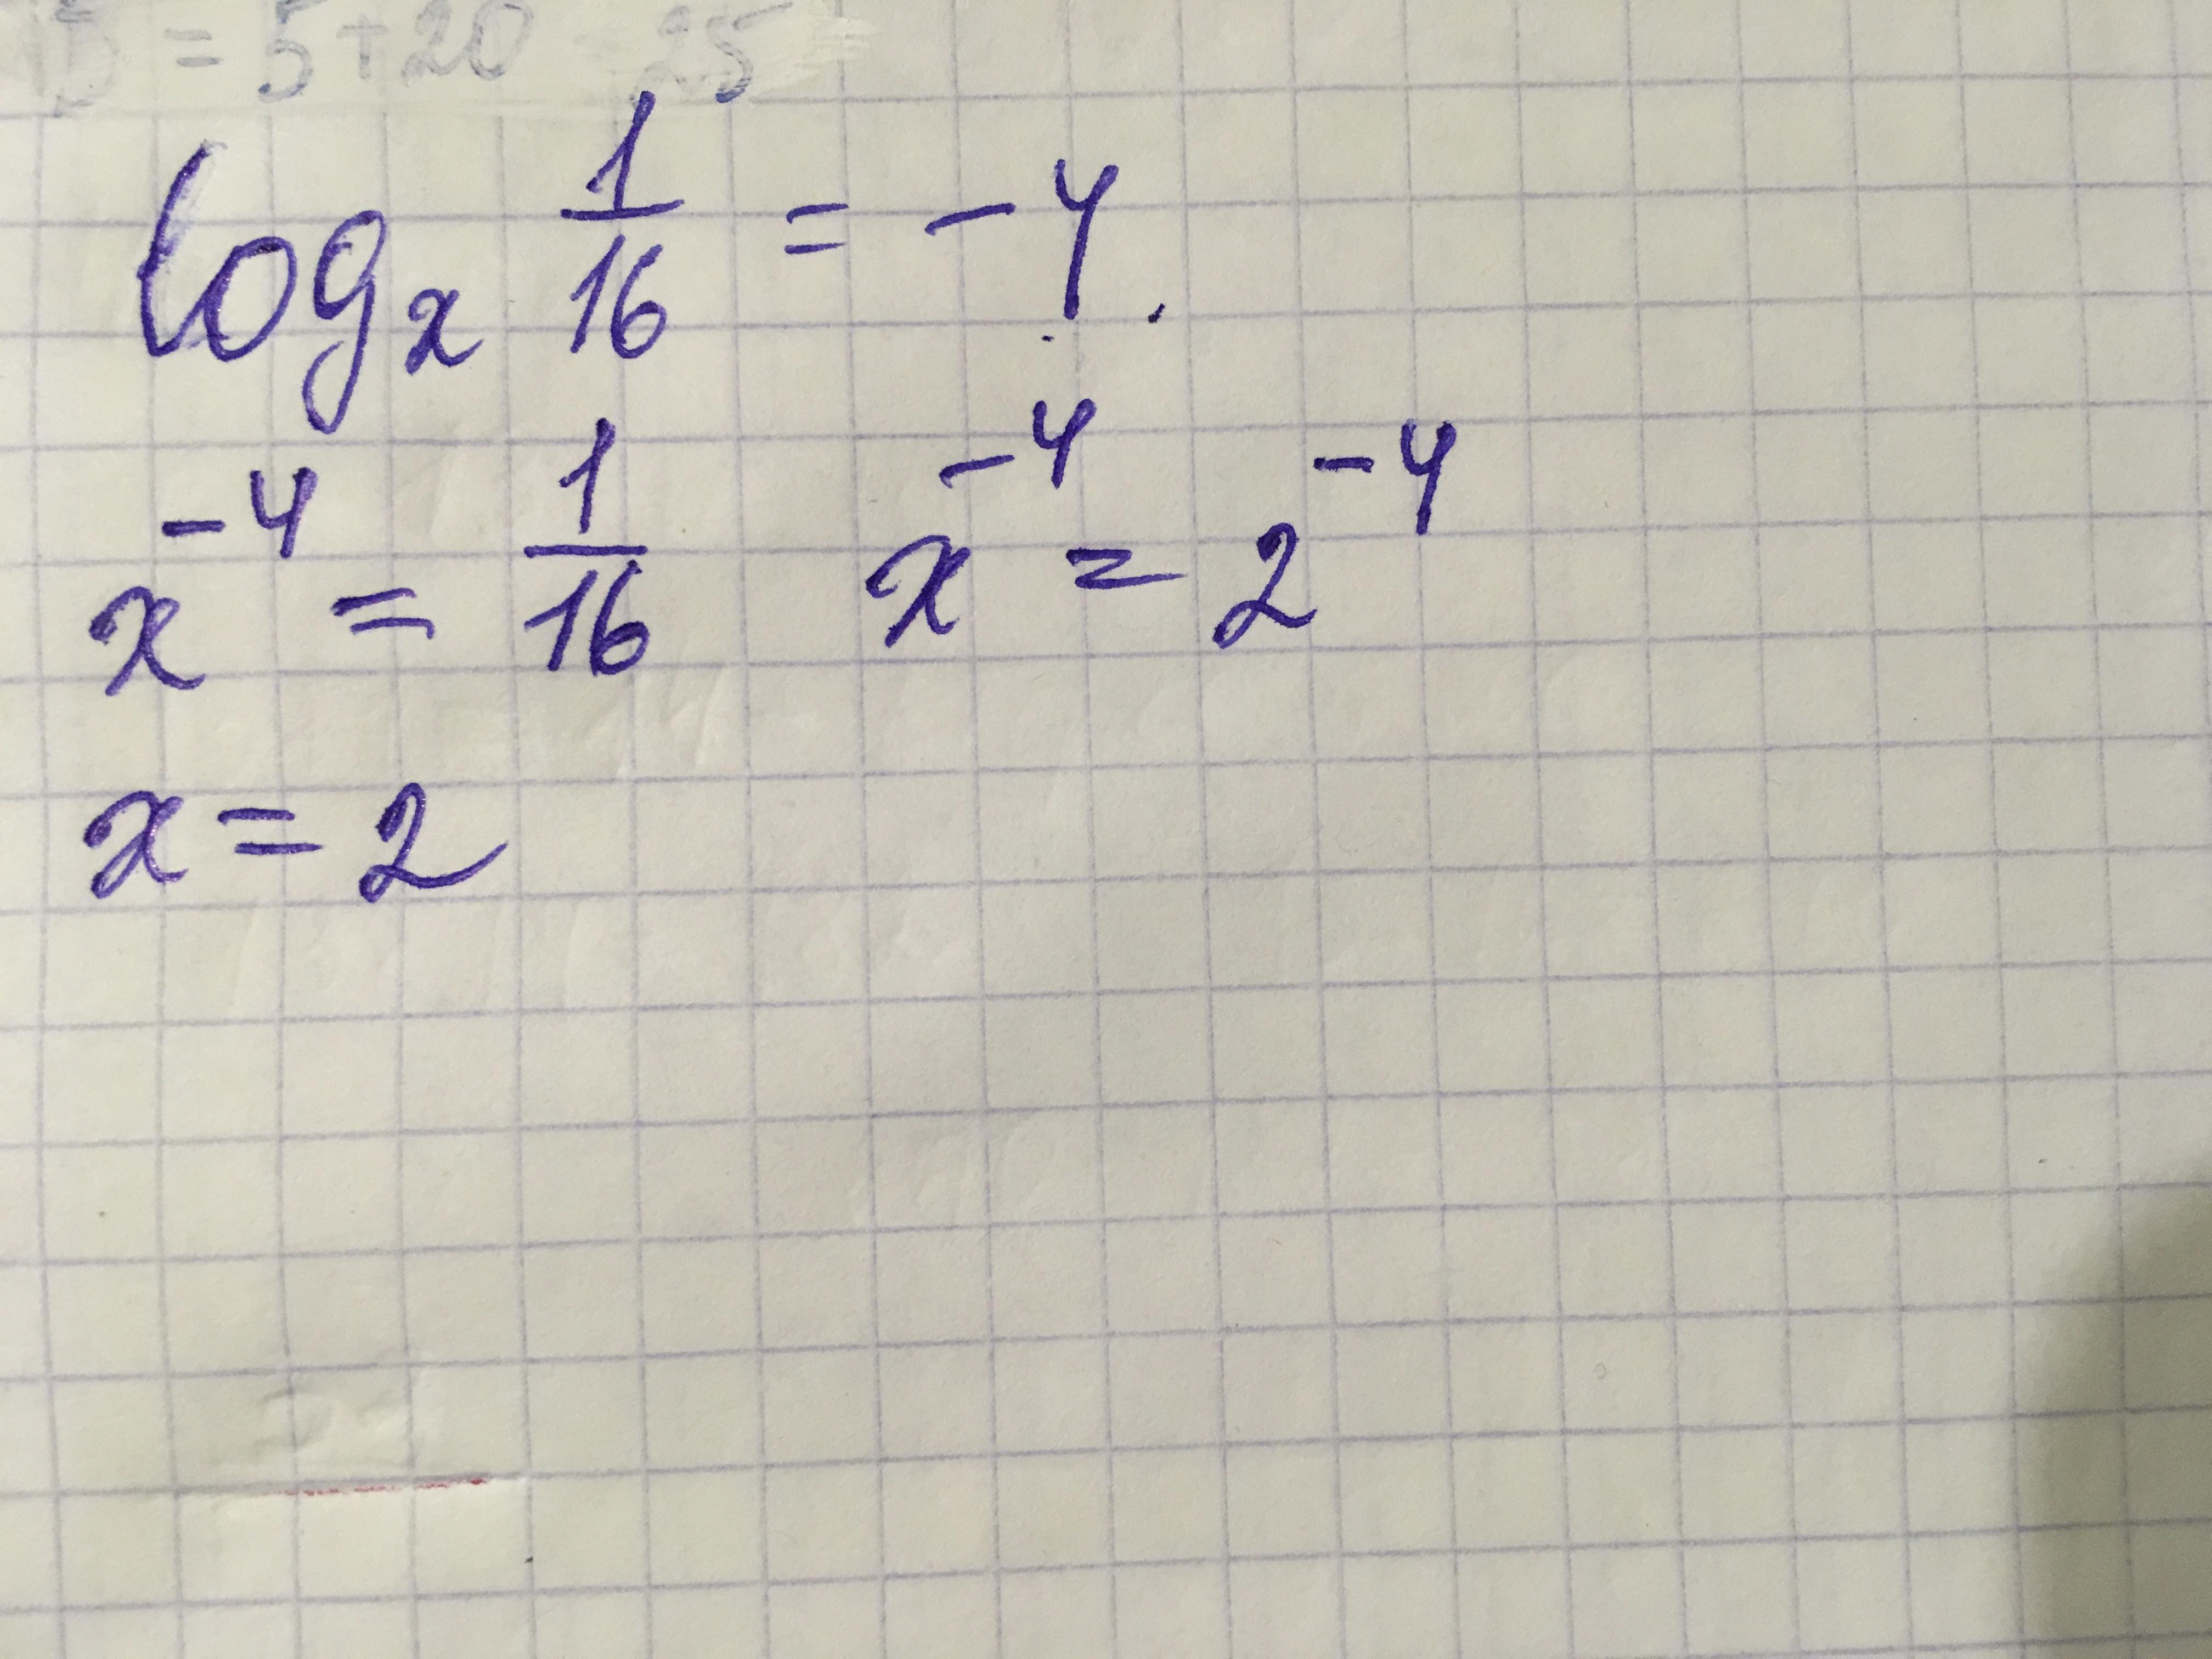 = 5 + 20 25
log_x 1/16 = -4.
x^-4 = 1/16 x^-4 = 2^-4
x = 2